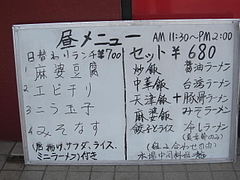 昼メニュー AM 11:30~PM 2:00
日替わりランチ¥700
1 麻婆豆腐
2 エビチリ
3 ニラ玉子
4 みそなす
(唐揚げ、サラダ、ライス、
ミニラーメン)付き
セット¥680
炒飯 醤油ラーメン
中華飯 台湾ラーメン
天津飯 + 豚骨ラーメン
麻婆飯 みそラーメン
餃子とライス 冷しラーメン
(組み合わせ自由)